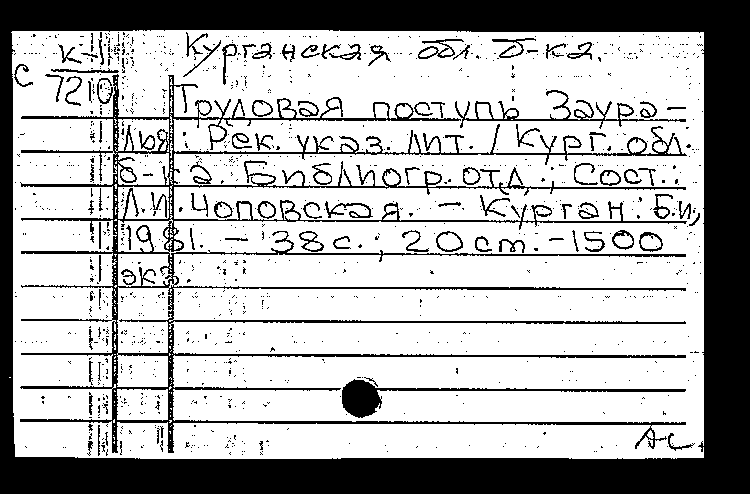 К-1 Курганская обл. б-ка.
С 7210
Трудовая поступь Заура-
лья: Рек. указ. лит. / Кург. обл.
б-ка. Библиогр. отд.; Сост.:
Л.И. Чоповская. - Курган: Б.и,
1981. - 38 с.; 20 см. - 1500
экз.
АС